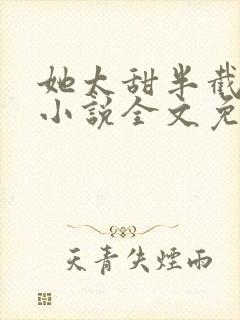 她太甜半截
小說全文免
天青失煙雨